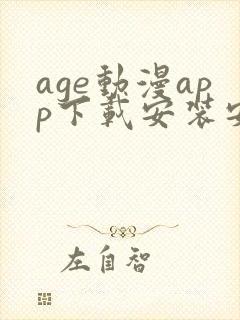 age動漫ap
p下載安裝安
左自智